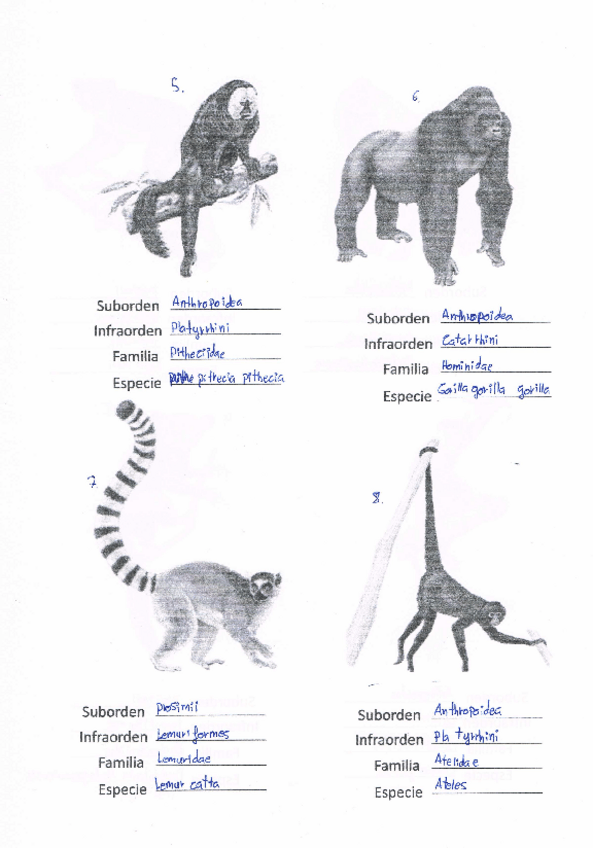 5.
Suborden Anthropoidea
Infraorden Platyrrhini
Familia Pitheciidae
Especie pitrecia pithecia
6.
Suborden Anthropoidea
Infraorden Catarrhini
Familia Hominidae
Especie Gorilla gorilla gorilla
7.
Suborden Prosimii
Infraorden Lemuriformes
Familia Lemuridae
Especie Lemur catta
8.
Suborden Anthropoidea
Infraorden Platyrrhini
Familia Atelidae
Especie Ateles